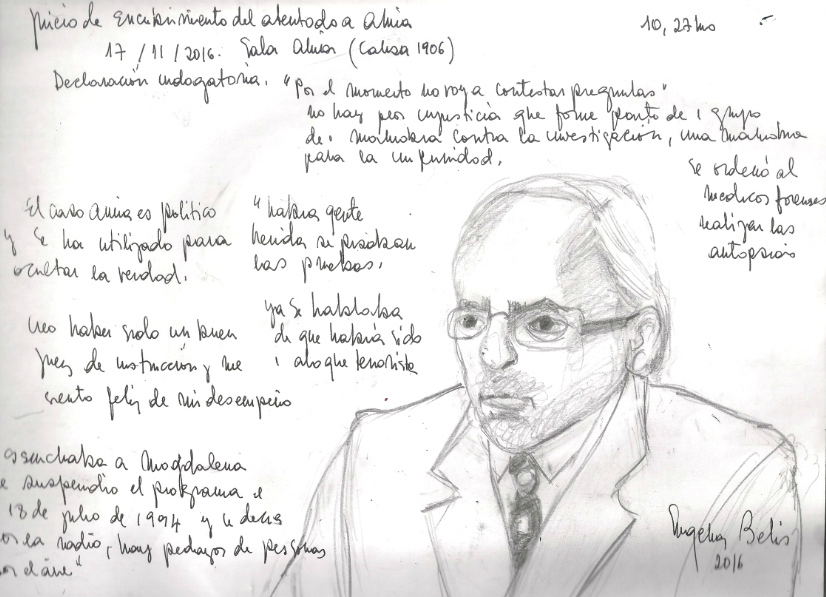 Juicio de Encubrimiento del atentado a Amia
10,27 hs
17/11/2016. Sala Amia (Causa 1906)
Declaración indagatoria. "Por el momento no voy a contestar preguntas"
no hay peor injusticia que forme parte de 1 grupo
de 1 maniobra contra la investigación, una maniobra
para la impunidad.
Se ordenó al
medicos forenses
realizar las
autopsias
El caso Amia es politico
y se ha utilizado para
ocultar la verdad.
"habia gente
herida se pisaban
las pruebas.
ya se hablaba
de que habia sido
1 ataque terrorista
Creo haber sido un buen
juez de instrucción y me
siento feliz de mi desempeño
escuchaba a Magdalena
se suspendio el programa e
18 de julio de 1994 y se decia
por la radio, hay pedazos de personas
por el aire"
Eugenia Bekis
2016